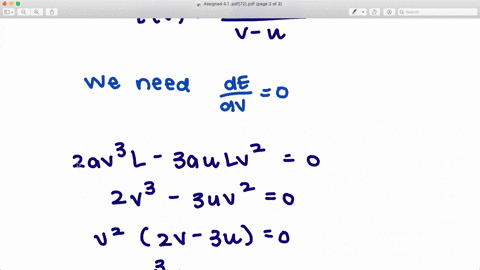 Assigned 4.1 .pdf(72).pdf (page 2 of 3)
Search
v-u
we need dE/dv = 0
2av³L - 3auLv² = 0
2v³ - 3uv² = 0
v² (2v - 3u) = 0
3